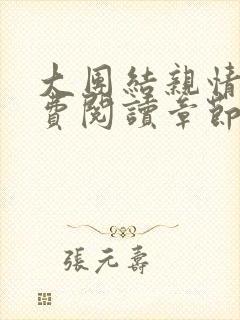 大團結親情
費閱讀章節
張元壽